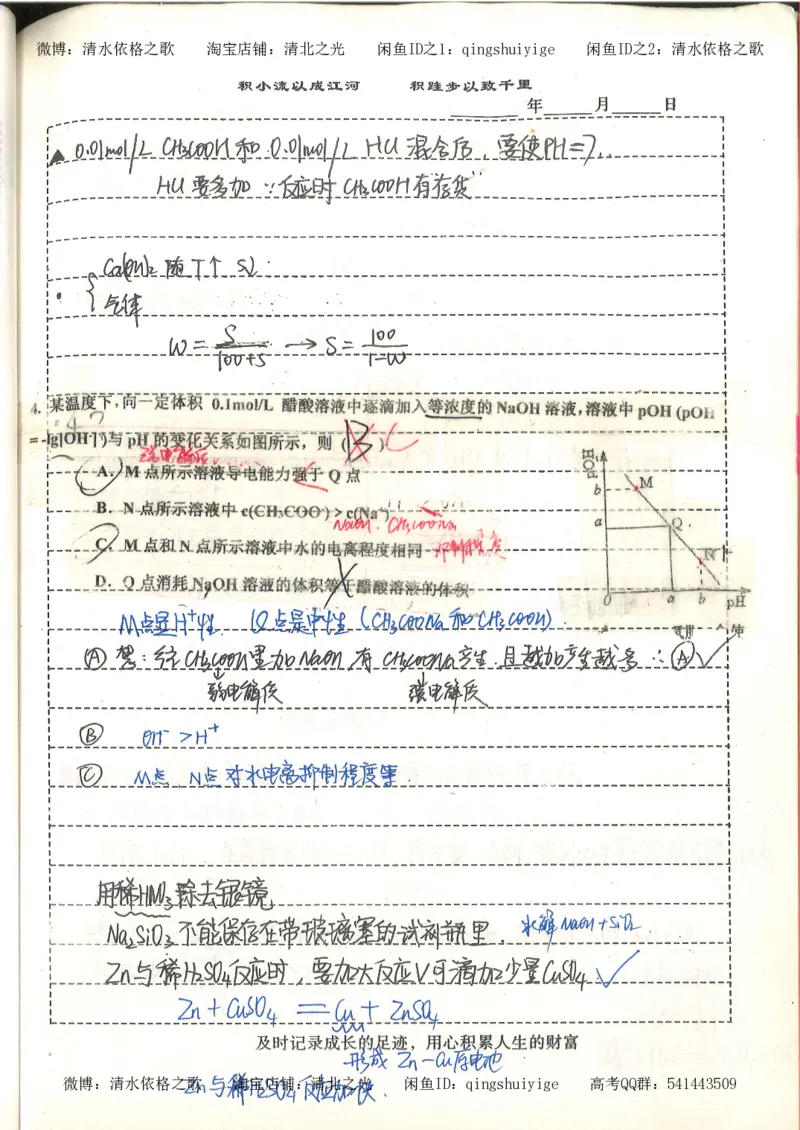 微博：清水依格之歌 淘宝店铺：清北之光 闲鱼ID之1：qingshuiyige 闲鱼ID之2：清水依格之歌
积小流以成江河 积跬步以致千里
年 月 日
▲ 0.01mol/L CH3COOH和0.01mol/L HCl 混合后，要使PH=7，
HCl要多加 ∵反应时CH3COOH有"存货"
Ca(OH)2 随T↑ S↓
气体
W = S/(100+S) → S = 100/(1-W)
4. 某温度下，向一定体积 0.1mol/L 醋酸溶液中逐滴加入等浓度的NaOH溶液，溶液中 pOH (pOH
=-lg[OH⁻])与 pH 的变化关系如图所示，则 ( B ) C
弱电解质
A. M 点所示溶液导电能力强于 Q 点
B. N 点所示溶液中 c(CH3COO⁻) > c(Na⁺)
NaOH. CH3COONa
C. M 点和 N 点所示溶液中水的电离程度相同 抑制程度
D. Q 点消耗 NaOH 溶液的体积等于醋酸溶液的体积
pOH
b M
a Q
N
0 a b pH
M点显H⁺性 Q点是中性 (CH3COONa和CH3COOH).
Ⓐ 错：往CH3COOH里加NaOH，有CH3COONa产生，且越加产生越多 ∴Ⓐ✓
弱电解质 强电解质
Ⓑ OH⁻ > H⁺
Ⓒ M点、N点对水电离抑制程度等.
用稀HNO3除去银镜
Na2SiO3不能保存在带玻璃塞的试剂瓶里， 水解NaOH+SiO2
Zn与稀H2SO4反应时，要加大反应V可滴加少量CuSO4 ✓
Zn + CuSO4 = Cu + ZnSO4
及时记录成长的足迹，用心积累人生的财富
形成 Zn-Cu原电池
微博：清水依格之歌 淘宝店铺：清北之光 闲鱼ID：qingshuiyige 高考QQ群：541443509
Zn与稀H2SO4反应加快.